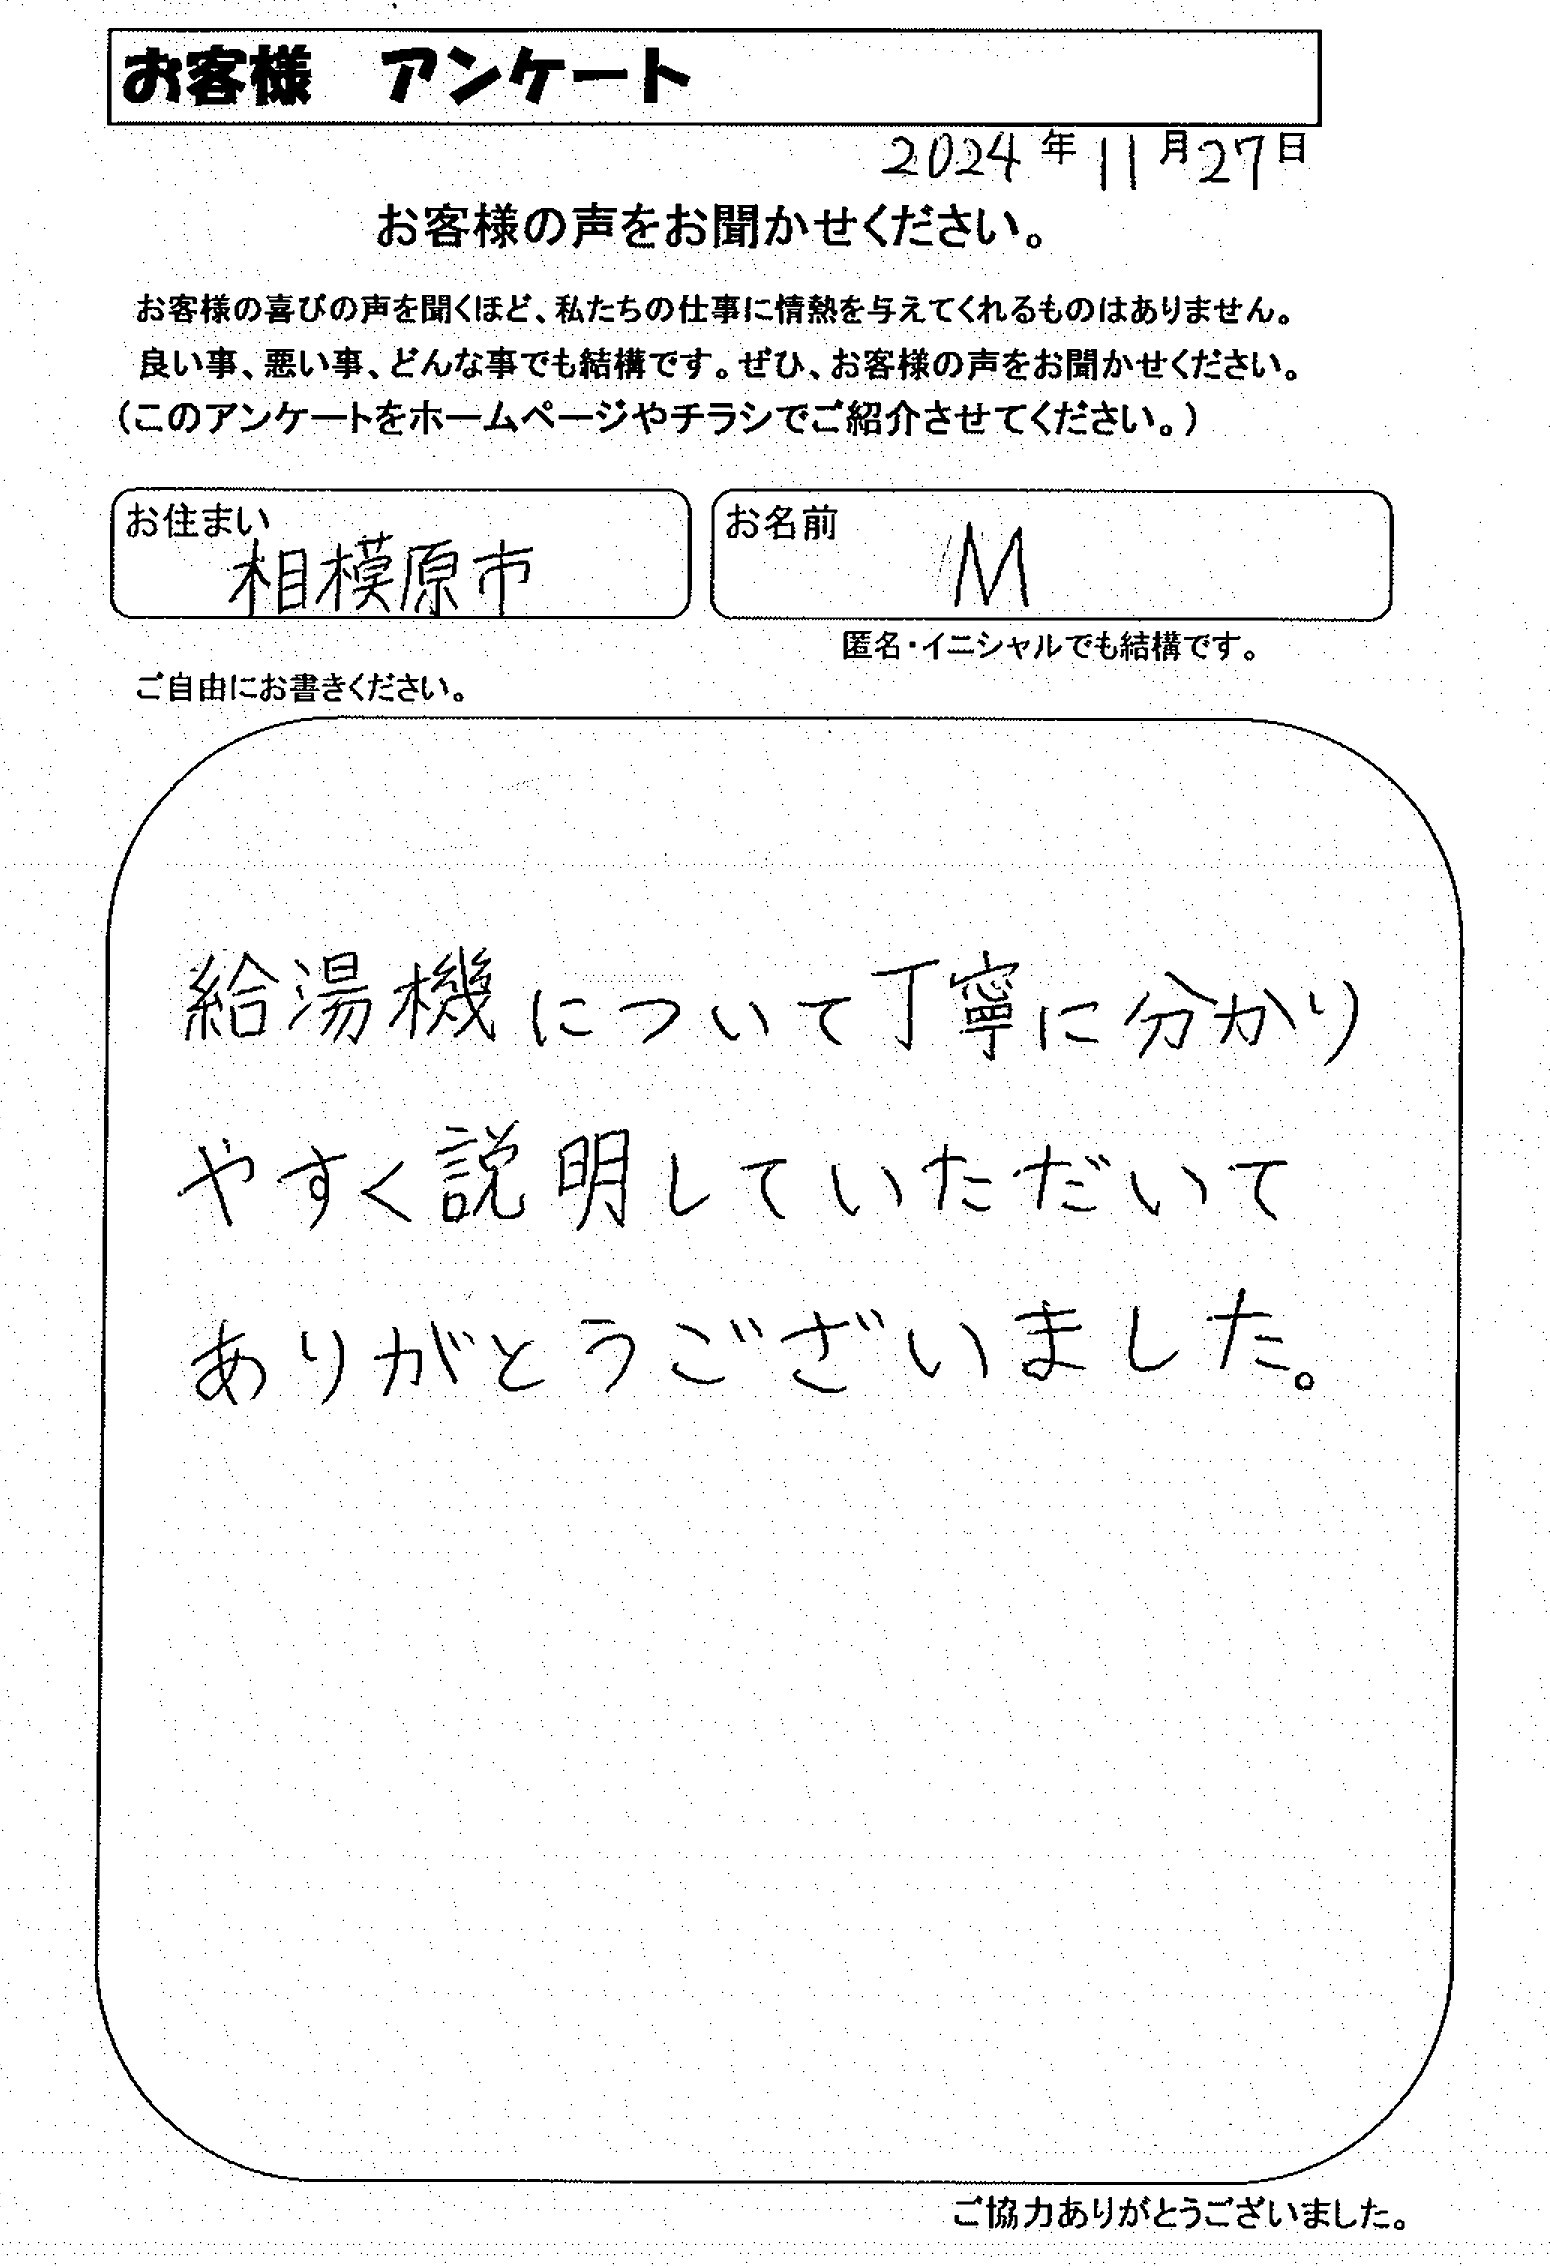 お客様　アンケート
2024年11月27日
お客様の声をお聞かせください。
お客様の喜びの声を聞くほど、私たちの仕事に情熱を与えてくれるものはありません。
良い事、悪い事、どんな事でも結構です。ぜひ、お客様の声をお聞かせください。
（このアンケートをホームページやチラシでご紹介させてください。）
お住まい
相模原市
お名前
M
匿名・イニシャルでも結構です。
ご自由にお書きください。
給湯機について丁寧に分かり
やすく説明していただいて
ありがとうございました。
ご協力ありがとうございました。